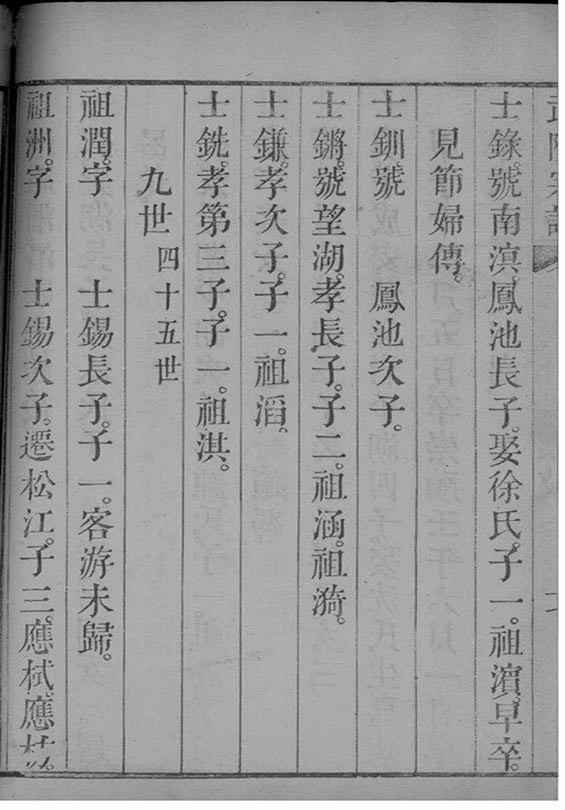 士錄。號南溟。鳳池長子。娶徐氏。子一。祖濵。早卒。
見節婦傳。
士釧。號　鳳池次子。
士鏘。號望湖。孝長子。子二。祖涵。祖漪。
士鎌。孝次子。子一。祖滔。
士銑。孝第三子。子一。祖淇。
九世 四十五世
祖潤。字　士錫長子。子一。客游未歸。
祖洲。字　士錫次子。遷松江。子三。應栻。應